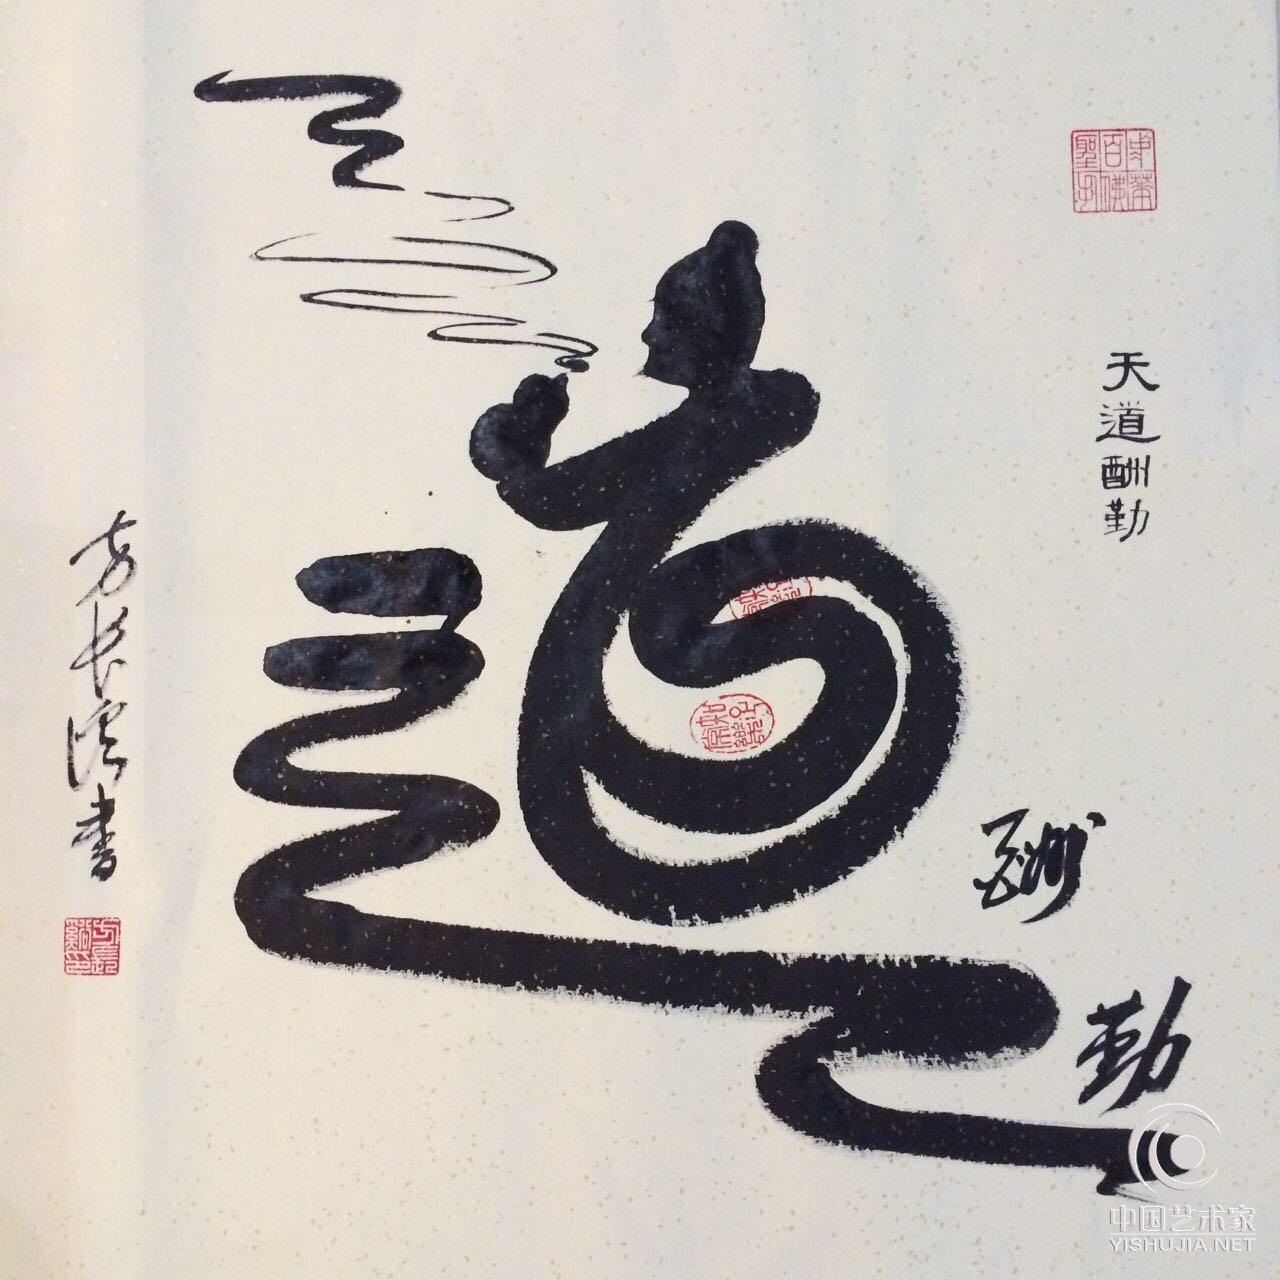 天道酬勤
道
酬
勤
方长溪书
中国艺术家
YISHUJIA.NET